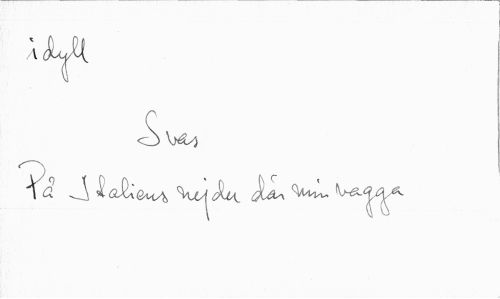 idyll
Svas
På Italiens nejder där min vagga